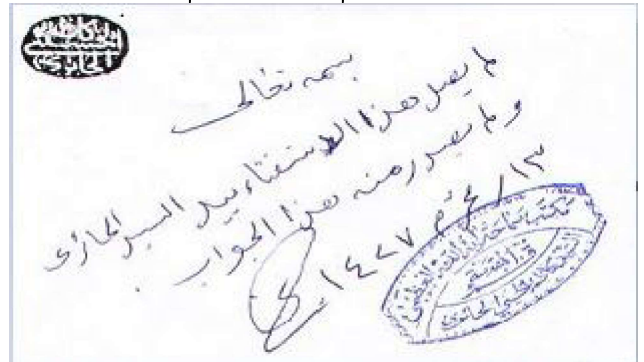 كاظم
الحائري
بسمه تعالى
لم يصل هذا الاستفتاء بيد السيد الحائري
ولم يصدر منه هذا الجواب.
١٣/محرم ١٤٢٧هـ
مكتب سماحة آية الله العظمى
السيد كاظم الحائري
قم المقدسة